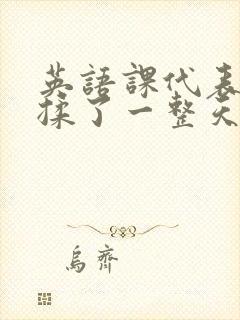 英語課代表
揉了一整天
烏齊